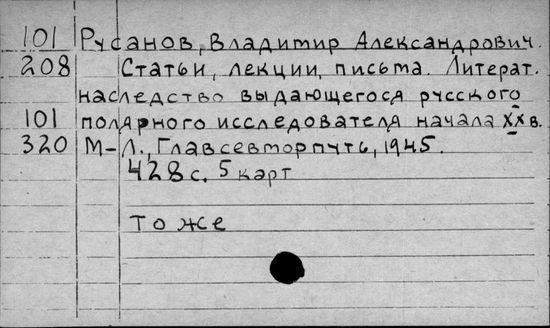 101 Русанов, Владимир Александрович.
208 Статьи, лекции, письма. Литерат.
наследство выдающегося русского
101 полярного исследователя начала XX в.
320 М-Л., Главсевморпуть, 1945.
428 с. 5 карт
То же